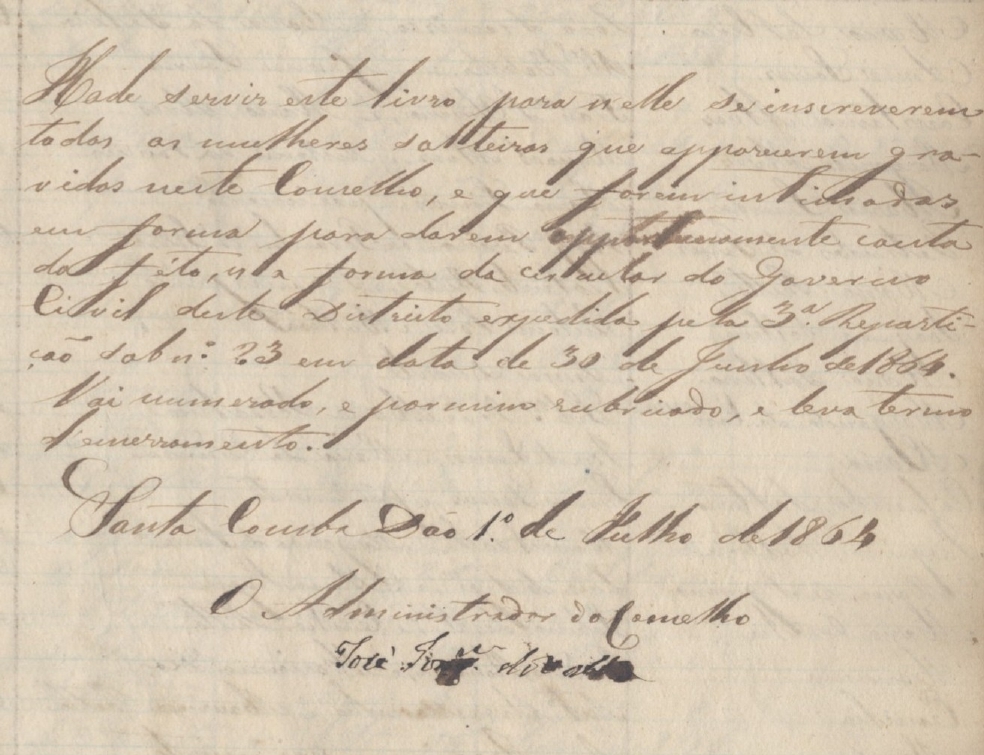 Hade servir este livro para nelle se inscreverem
todas as mulheres solteiras que apparecerem gra-
vidas neste Concelho, e que forem intimadas
em forma para darem opportunamente conta
do féto, na forma da circular do Governo
Civil deste Districto expedida pela 3.ª Reparti-
ção sob n.º 23 em data de 30 de Junho de 1864.
Vai numerado, e por mim rubricado, e leva termo
d'encerramento.
Santa Comba Dão 1.º de Julho de 1864
O Administrador do Concelho
José